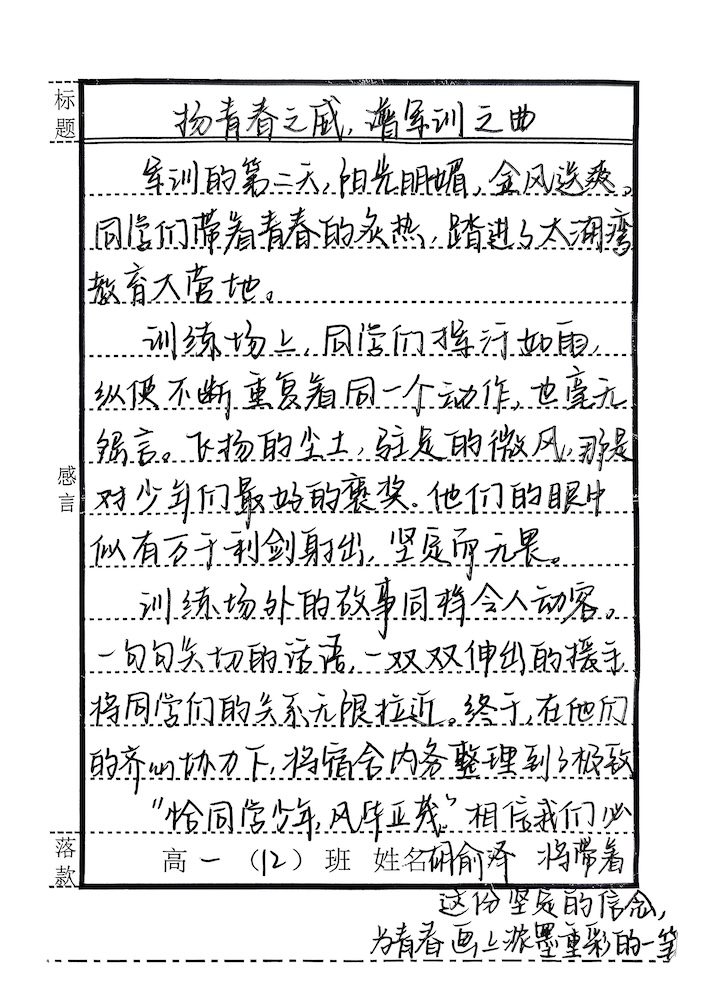 标题
扬青春之威，谱军训之曲
军训的第二天，阳光明媚，金风送爽。
同学们带着青春的炙热，踏进了太湖湾
教育大营地。
训练场上，同学们挥汗如雨，
纵使不断重复着同一个动作，也毫无
怨言。飞扬的尘土，驻足的微风，那是
感言
对少年们最好的褒奖。他们的眼中
似有万千利剑射出，坚定而无畏。
训练场外的故事同样令人动容。
一句句关切的话语，一双双伸出的援手
将同学们的关系无限拉近。终于，在他们
的齐心协力下，将宿舍内务整理到了极致
“恰同学少年，风华正茂”相信我们必
落款
高一（12）班 姓名胡俞泽 将带着
这份坚定的信念，
为青春画上浓墨重彩的一笔